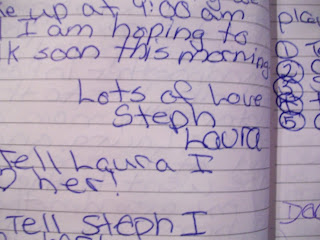 up at 9:00 am
I am hoping to
soon this morning
Lots of Love
Steph
Laura
Tell Laura I
her!
Tell Steph I
play
①
②
③
④
⑤